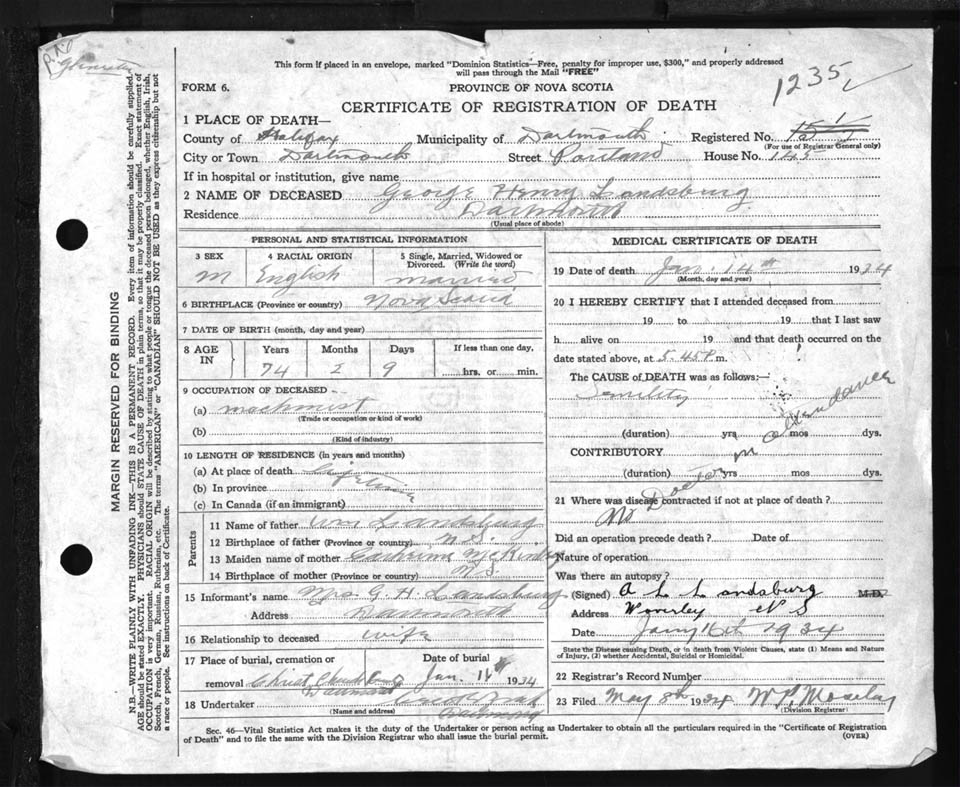 This form if placed in an envelope, marked "Dominion Statistics—Free, penalty for improper use, $300," and properly addressed
will pass through the Mail "FREE"
FORM 6.
PROVINCE OF NOVA SCOTIA
1235
CERTIFICATE OF REGISTRATION OF DEATH
1 PLACE OF DEATH—
County of Halifax Municipality of Dartmouth Registered No.
(For use of Registrar General only)
City or Town Dartmouth Street Portland House No. 145
If in hospital or institution, give name
2 NAME OF DECEASED George Henry Landsburg
Residence Dartmouth
(Usual place of abode)
PERSONAL AND STATISTICAL INFORMATION
3 SEX 4 RACIAL ORIGIN 5 Single, Married, Widowed or
Divorced. (Write the word)
M English married
6 BIRTHPLACE (Province or country) Nova Scotia
7 DATE OF BIRTH (month, day and year)
8 AGE IN Years Months Days If less than one day,
74 2 9 hrs. or min.
9 OCCUPATION OF DECEASED
(a) machinist
(Trade or occupation or kind of work)
(b)
(Kind of industry)
10 LENGTH OF RESIDENCE (in years and months)
(a) At place of death lifetime
(b) In province
(c) In Canada (if an immigrant)
Parents
11 Name of father Wm Landsburg
12 Birthplace of father (Province or country) N.S.
13 Maiden name of mother Catherine McKinley
14 Birthplace of mother (Province or country) N S
15 Informant's name Mrs G. H. Landsburg
Address Dartmouth
16 Relationship to deceased wife
17 Place of burial, cremation or Date of burial
removal Christ Church Jan. 1934
Dartmouth
18 Undertaker
(Name and address)
MEDICAL CERTIFICATE OF DEATH
19 Date of death Jan 14th 1934
(Month, day and year)
20 I HEREBY CERTIFY that I attended deceased from
19 to 19 that I last saw
h alive on 19 and that death occurred on the
date stated above, at 5.45 P. m.
The CAUSE of DEATH was as follows:—
Senility
(duration) yrs mos dys.
CONTRIBUTORY
(duration) yrs mos dys.
No Doctor in attendance
21 Where was disease contracted if not at place of death?
Did an operation precede death? Date of
Nature of operation
Was there an autopsy?
(Signed) A L Landsburg M.D.
Address Waverley N S
Date Jany 16th 1934
State the Disease causing Death, or in death from Violent Causes, state (1) Means and Nature
of Injury, (2) whether Accidental, Suicidal or Homicidal.
22 Registrar's Record Number
23 Filed May 8th 1934 W P Moseley
(Division Registrar)
Sec. 46—Vital Statistics Act makes it the duty of the Undertaker or person acting as Undertaker to obtain all the particulars required in the "Certificate of Registration
of Death" and to file the same with the Division Registrar who shall issue the burial permit.
(OVER)
MARGIN RESERVED FOR BINDING
N.B.—WRITE PLAINLY WITH UNFADING INK—THIS IS A PERMANENT RECORD. Every item of information should be carefully supplied.
AGE should be stated EXACTLY. PHYSICIANS should STATE CAUSE OF DEATH in plain terms, so that it may be properly classified. Exact statement of
OCCUPATION is very important. RACIAL ORIGIN will be described by stating to what people or tongue the deceased person belonged, whether English, Irish,
Scotch, French, German, Russian, Ruthenian, etc. The terms "AMERICAN" or "CANADIAN" SHOULD NOT BE USED as they express citizenship but not
a race or people. See instructions on back of Certificate.